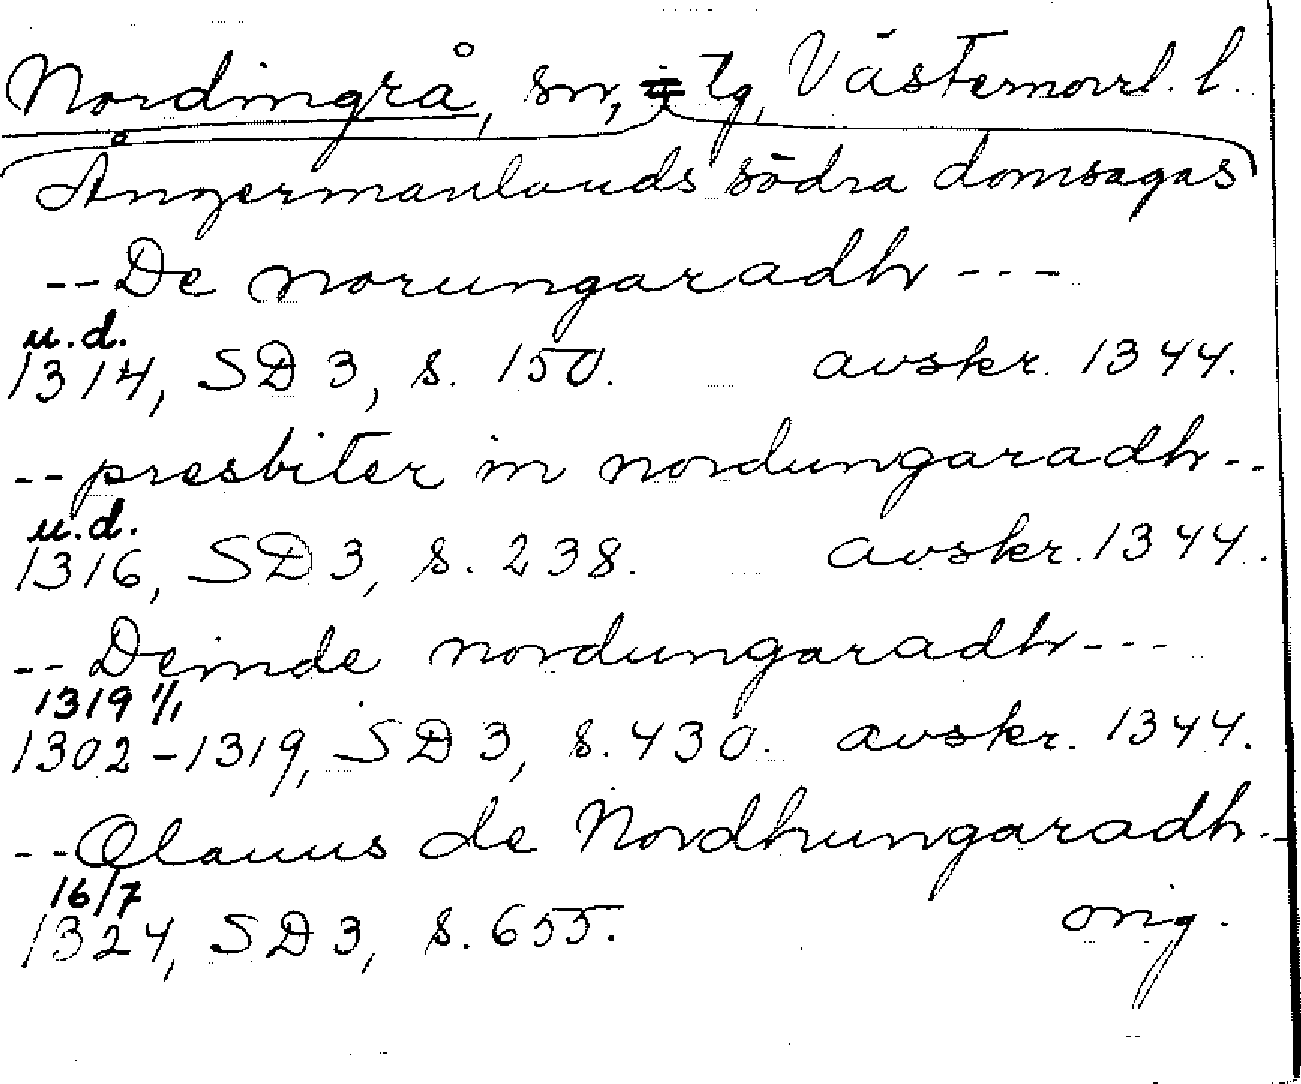 Nordingrå, sn, i tg, Västernorrl. l.
Ångermanlands södra domsagas
-- De norungaradh ---
u.d.
1314, SD 3, s. 150. avskr. 1344.
-- presbiter in nordungaradh --
u.d.
1316, SD 3, s. 238. avskr. 1344.
-- Deinde nordungaradh ---
1319 1/1
1302-1319, SD 3, s. 430. avskr. 1344.
-- Olauus de Nordhungaradh --
16/7
1324, SD 3, s. 655. orig.